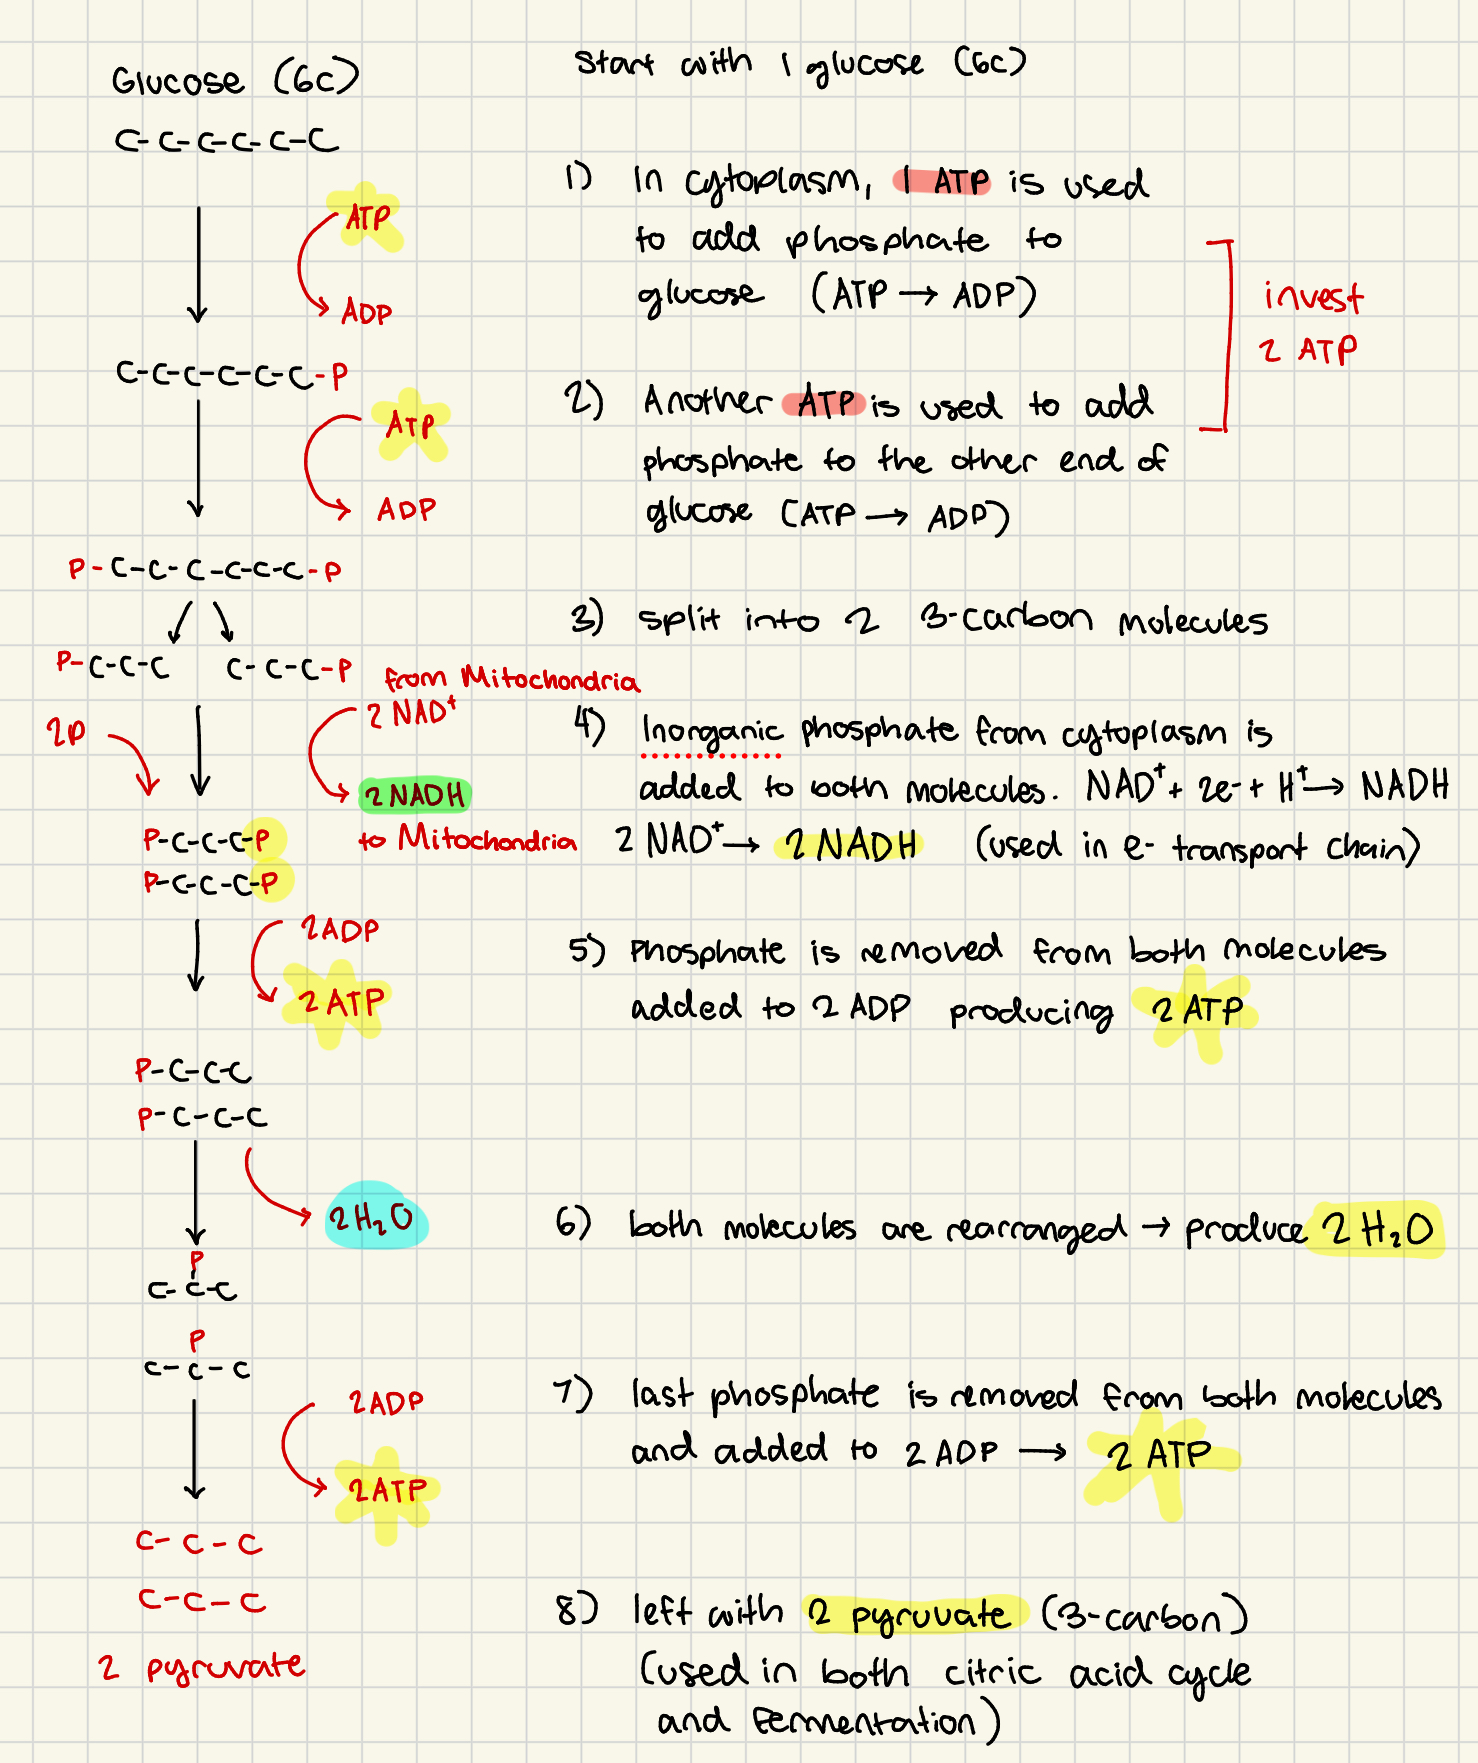 Glucose (6c)
C-C-C-C-C-C
ATP
ADP
C-C-C-C-C-C-P
ATP
ADP
P-C-C-C-C-C-C-P
P-C-C-C C-C-C-P
from Mitochondria
2P
2 NAD+
2 NADH
to Mitochondria
P-C-C-C-P
P-C-C-C-P
2ADP
2 ATP
P-C-C-C
P-C-C-C
2H₂O
P
C-C-C
P
C-C-C
2ADP
2ATP
C-C-C
C-C-C
2 pyruvate
Start with 1 glucose (6c)
1) In cytoplasm, 1 ATP is used
to add phosphate to
glucose (ATP → ADP)
2) Another ATP is used to add
phosphate to the other end of
glucose (ATP → ADP)
invest
2 ATP
3) split into 2 3-carbon molecules
4) Inorganic phosphate from cytoplasm is
added to both molecules. NAD+ + 2e- + H+ → NADH
2 NAD+ → 2 NADH (used in e- transport chain)
5) Phosphate is removed from both molecules
added to 2 ADP producing 2 ATP
6) both molecules are rearranged → produce 2 H₂O
7) last phosphate is removed from both molecules
and added to 2 ADP → 2 ATP
8) left with 2 pyruvate (3-carbon)
(used in both citric acid cycle
and Fermentation)